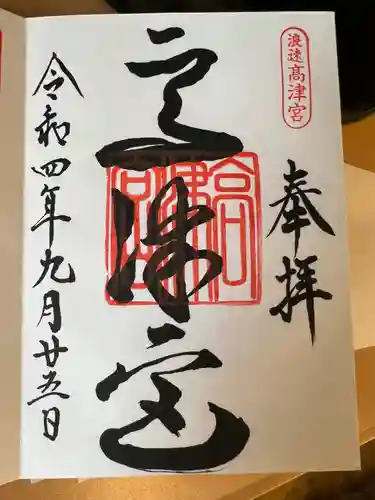 浪速高津宮
奉拝
高津宮
令和四年九月廿五日